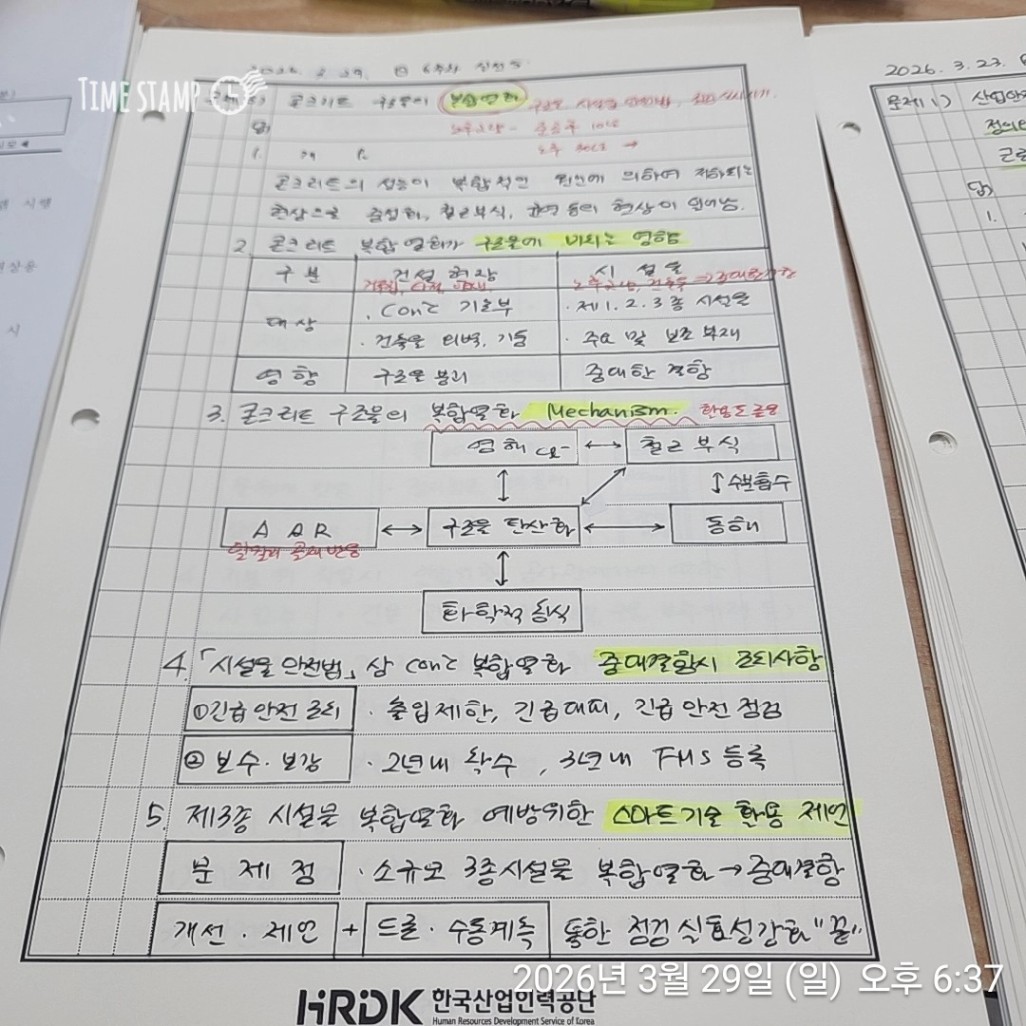 TIMESTAMP 5
2026. 3. 29. 日 6주차 실전
문제 5) 콘크리트 구조물의 복합열화
답)
1. 개 요
콘크리트의 성능이 복합적인 원인에 의하여 저하되는
현상으로 중성화, 철근부식, 균열 등의 현상이 일어남.
2. 콘크리트 복합열화가 구조물에 미치는 영향
구분 건설현장 시설물
대상 · Conc 기초부 · 제1, 2, 3종 시설물
· 건축물 외벽, 기둥 · 주요 및 보조 부재
영향 구조물 붕괴 중대한 결함
3. 콘크리트 구조물의 복합열화 Mechanism.
염해 Cl- ↔ 철근 부식
↕ 수분흡수
AAR ↔ 구조물 탄산화 ↔ 동해
알칼리 골재 반응
화학적 침식
4. 「시설물 안전법」상 Conc 복합열화 중대결함시 조치사항
① 긴급 안전 조치 · 출입제한, 긴급대피, 긴급 안전 점검
② 보수·보강 · 2년내 착수, 3년내 FMS 등록
5. 제3종 시설물 복합열화 예방위한 스마트기술 활용 제언
문제점 · 소규모 3종시설물 복합열화 → 중대결함
개선·제언 + 드론·수동계측 통한 점검 실효성강화 "끝"
HRDK 한국산업인력공단
Human Resources Development Service of Korea
2026. 3. 23.
문제 1) 산업안전
정의
답)
1.
2026년 3월 29일 (일) 오후 6:37